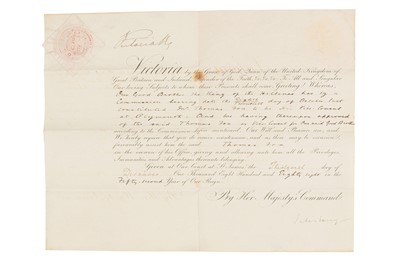 Victoria R
Victoria by the Grace of God, Queen of the United Kingdom of
Great Britain and Ireland, Defender of the Faith, &c. &c. &c. To All and Singular
Our loving Subjects to whom these Presents shall come, Greeting! Whereas,
Our Good Brother the King of the has by a
Commission bearing date the day of last
constituted Mr Thomas Fox to be His Vice Consul
at Plymouth And We having thereupon approved
of the said Thomas Fox as
according to the Commission before mentioned Our Will and Pleasure are, and
We hereby require that you do receive, countenance, and as there may be occasion
favourably assist him the said Thomas Fox
in the exercise of his Office, giving and allowing unto him all the Privileges
Immunities and Advantages thereunto belonging.
Given at Our Court at St James's the day of
December One Thousand Eight Hundred and Eighty eight in the
Fifty second Year of Our Reign.
By Her Majesty's Command
Salisbury